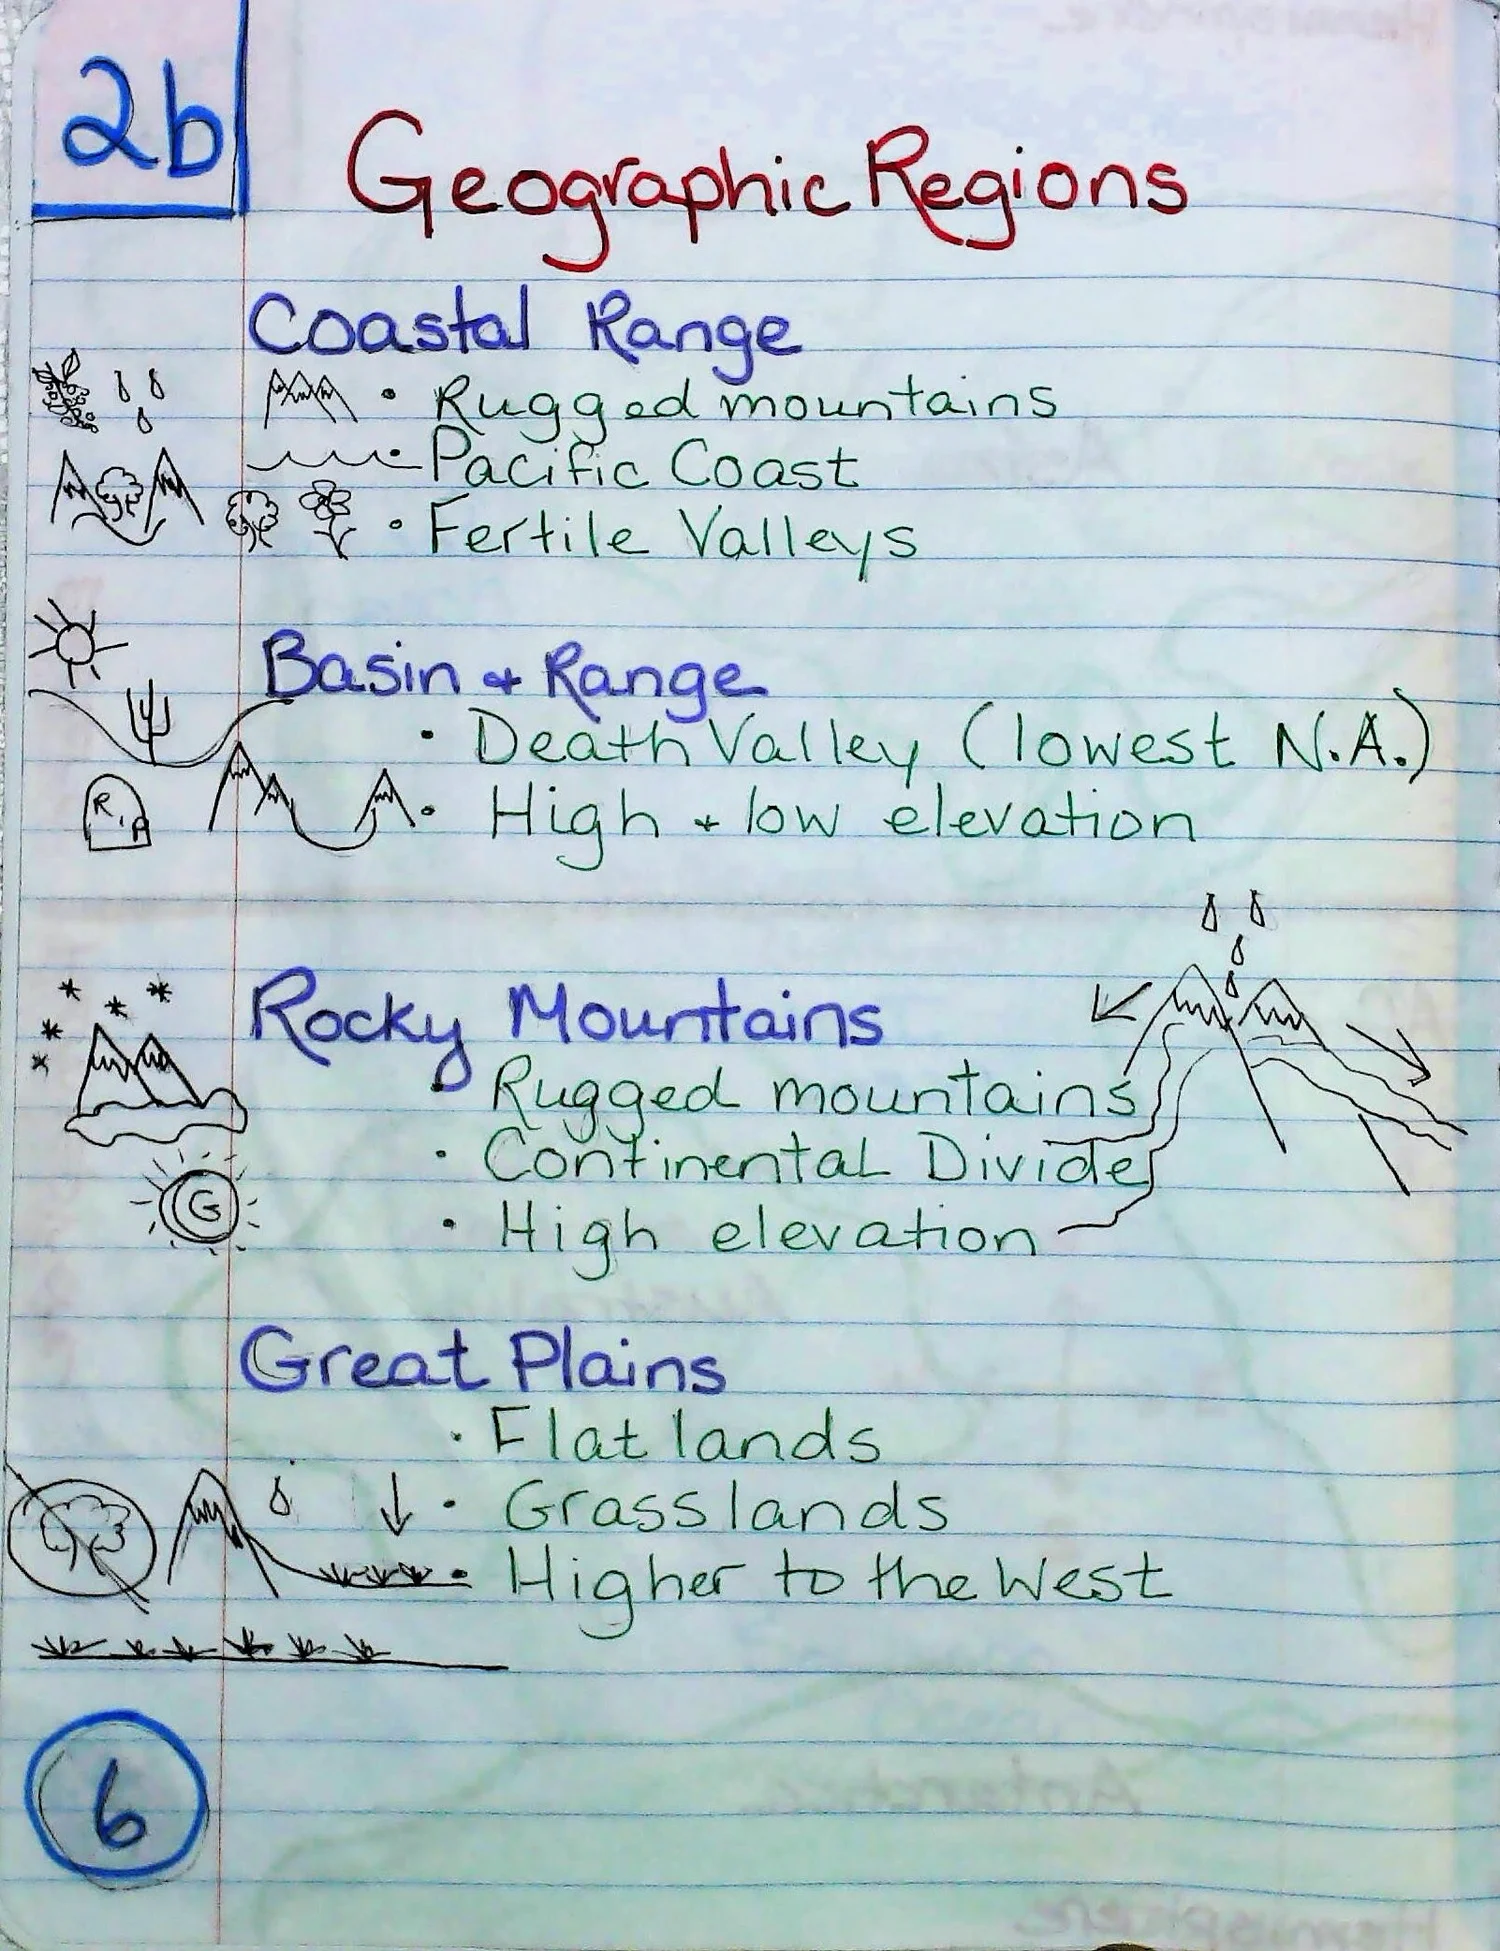 2b
Geographic Regions
Coastal Range
• Rugged mountains
• Pacific Coast
• Fertile Valleys
Basin + Range
• Death Valley (lowest N.A.)
• High + low elevation
R.I.P
Rocky Mountains
• Rugged mountains
• Continental Divide
• High elevation
G
Great Plains
• Flatlands
• Grasslands
• Higher to the West
6